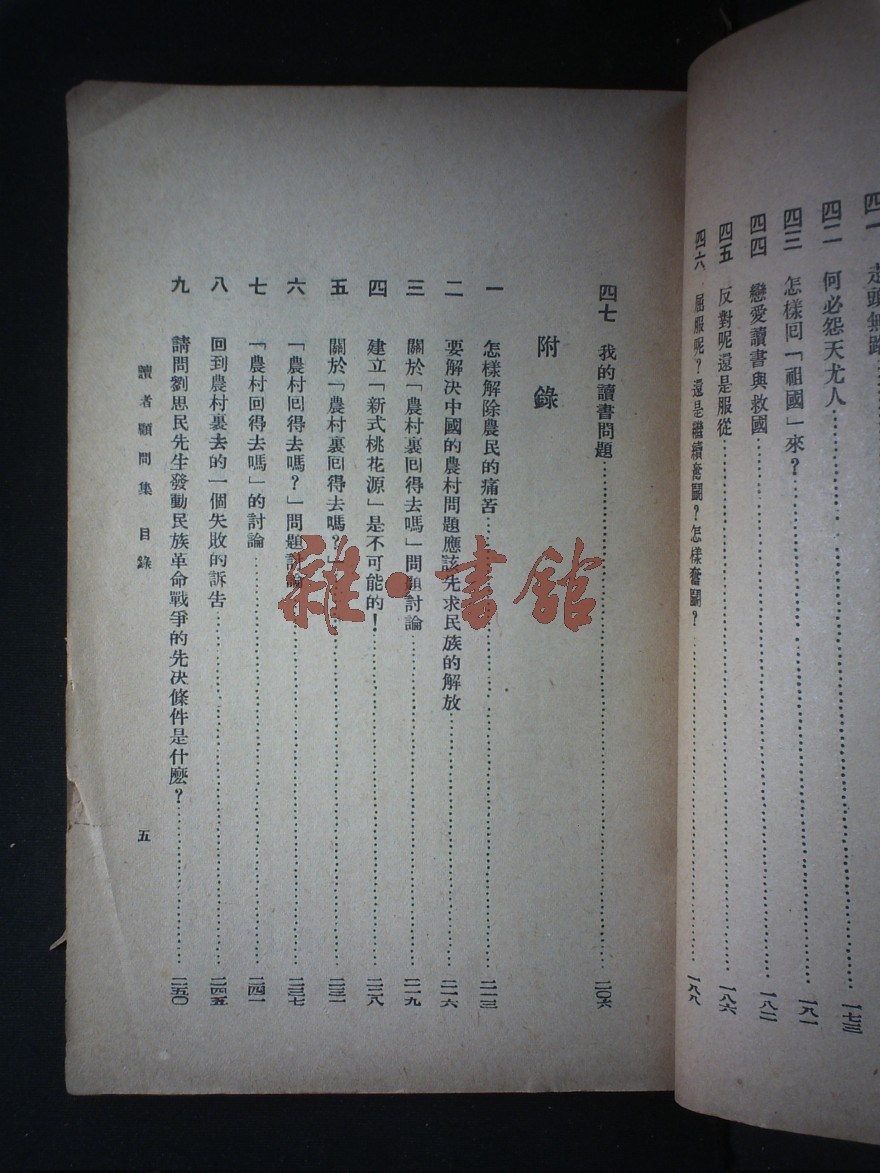 四一 走頭無路
四二 何必怨天尤人…………一七三
四三 怎樣囘「祖國」來？…………一八一
四四 戀愛讀書與救國…………一八二
四五 反對呢還是服從…………一八六
四六 屈服呢？還是繼續奮鬭？怎樣奮鬭？…………一八八
四七 我的讀書問題…………二〇六
附錄
一 怎樣解除農民的痛苦…………二一三
二 要解決中國的農村問題應該先求民族的解放…………二一六
三 關於「農村裏囘得去嗎」問題討論…………二一九
四 建立「新式桃花源」是不可能的！…………二二八
五 關於「農村裏囘得去嗎？」…………二三一
六 「農村囘得去嗎？」問題討論…………二三七
七 「農村回得去嗎」的討論…………二四一
八 回到農村裏去的一個失敗的訴吿…………二四五
九 請問劉思民先生發動民族革命戰爭的先決條件是什麽？…………二五〇
讀者顧問集 目錄
五
雜·書舘